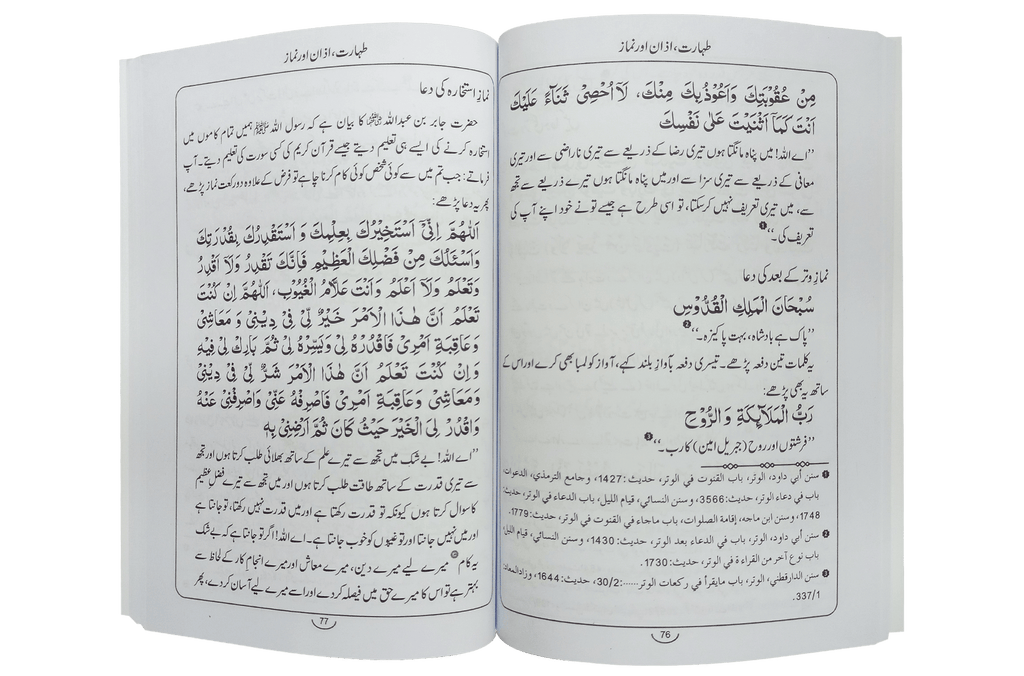 طہارت، اذان اور نماز
مِنْ عُقُوْبَتِكَ وَاَعُوْذُبِكَ مِنْكَ، لَآ اُحْصِىْ ثَنَآءً عَلَيْكَ
اَنْتَ كَمَآ اَثْنَيْتَ عَلٰى نَفْسِكَ
”اے اللہ! میں پناہ مانگتا ہوں تیری رضا کے ذریعے سے تیری ناراضی سے اور تیری
معافی کے ذریعے سے تیری سزا سے اور میں پناہ مانگتا ہوں تیرے ذریعے سے تجھ
سے، میں تیری تعریف نہیں کر سکتا، تو اسی طرح ہے جیسے تو نے خود اپنے آپ کی
تعریف کی۔“❶
نمازِ وتر کے بعد کی دعا
سُبْحَانَ الْمَلِكِ الْقُدُّوْسِ
”پاک ہے بادشاہ، بہت پاکیزہ۔“❷
یہ کلمات تین دفعہ پڑھے۔ تیسری دفعہ بآواز بلند کہے، آواز کو لمبا بھی کرے اور اس کے
ساتھ یہ بھی پڑھے:
رَبُّ الْمَلَآئِكَةِ وَالرُّوْحِ
”فرشتوں اور روح (جبریل امین) کا رب۔“❸
❶ سنن أبي داود، الوتر، باب القنوت في الوتر، حديث:1427، وجامع الترمذي، الدعوات،
باب في دعاء الوتر، حديث:3566، وسنن النسائي، قيام الليل، باب الدعاء في الوتر، حديث:
1748، وسنن ابن ماجه، إقامة الصلوات، باب ماجاء في القنوت في الوتر، حديث:1779.
❷ سنن أبي داود، الوتر، باب في الدعاء بعد الوتر، حديث:1430، وسنن النسائي، قيام الليل،
باب نوع آخر من القراءة في الوتر، حديث:1730.
❸ سنن الدارقطني، الوتر، باب مايقرأ في ركعات الوتر......:30/2، حديث:1644، وزادالمعاد:
337/1.
76
طہارت، اذان اور نماز
نمازِ استخارہ کی دعا
حضرت جابر بن عبداللہ رضی اللہ عنہما کا بیان ہے کہ رسول اللہ ﷺ ہمیں تمام کاموں میں
استخارہ کرنے کی ایسے ہی تعلیم دیتے جیسے قرآن کریم کی کسی سورت کی تعلیم دیتے۔ آپ
فرماتے: جب تم میں سے کوئی شخص کوئی کام کرنا چاہے تو فرض کے علاوہ دو رکعت نماز پڑھے،
پھر یہ دعا پڑھے:
اَللّٰهُمَّ اِنِّىْٓ اَسْتَخِيْرُكَ بِعِلْمِكَ وَ اَسْتَقْدِرُكَ بِقُدْرَتِكَ
وَاَسْئَلُكَ مِنْ فَضْلِكَ الْعَظِيْمِ فَاِنَّكَ تَقْدِرُ وَلَآ اَقْدِرُ
وَتَعْلَمُ وَلَآ اَعْلَمُ وَاَنْتَ عَلَّامُ الْغُيُوْبِ، اَللّٰهُمَّ اِنْ كُنْتَ
تَعْلَمُ اَنَّ هٰذَا الْاَمْرَ خَيْرٌ لِّىْ فِىْ دِيْنِىْ وَ مَعَاشِىْ
وَعَاقِبَةِ اَمْرِىْ فَاقْدُرْهُ لِىْ وَيَسِّرْهُ لِىْ ثُمَّ بَارِكْ لِىْ فِيْهِ
وَاِنْ كُنْتَ تَعْلَمُ اَنَّ هٰذَا الْاَمْرَ شَرٌّ لِّىْ فِىْ دِيْنِىْ
وَمَعَاشِىْ وَعَاقِبَةِ اَمْرِىْ فَاصْرِفْهُ عَنِّىْ وَاصْرِفْنِىْ عَنْهُ
وَاقْدُرْ لِىَ الْخَيْرَ حَيْثُ كَانَ ثُمَّ اَرْضِنِىْ بِهٖ
”اے اللہ! بے شک میں تجھ سے تیرے علم کے ساتھ بھلائی طلب کرتا ہوں اور تجھ
سے تیری قدرت کے ساتھ طاقت طلب کرتا ہوں اور میں تجھ سے تیرے فضلِ عظیم
کا سوال کرتا ہوں کیونکہ تو قدرت رکھتا ہے اور میں قدرت نہیں رکھتا، تو جانتا ہے
اور میں نہیں جانتا اور تو غیبوں کو خوب جانتا ہے۔ اے اللہ! اگر تو جانتا ہے کہ بے شک
یہ کام میرے لیے میرے دین، میرے معاش اور میرے انجام کار کے لحاظ سے
بہتر ہے تو اس کا میرے حق میں فیصلہ کر دے اور اسے میرے لیے آسان کر دے، پھر
77